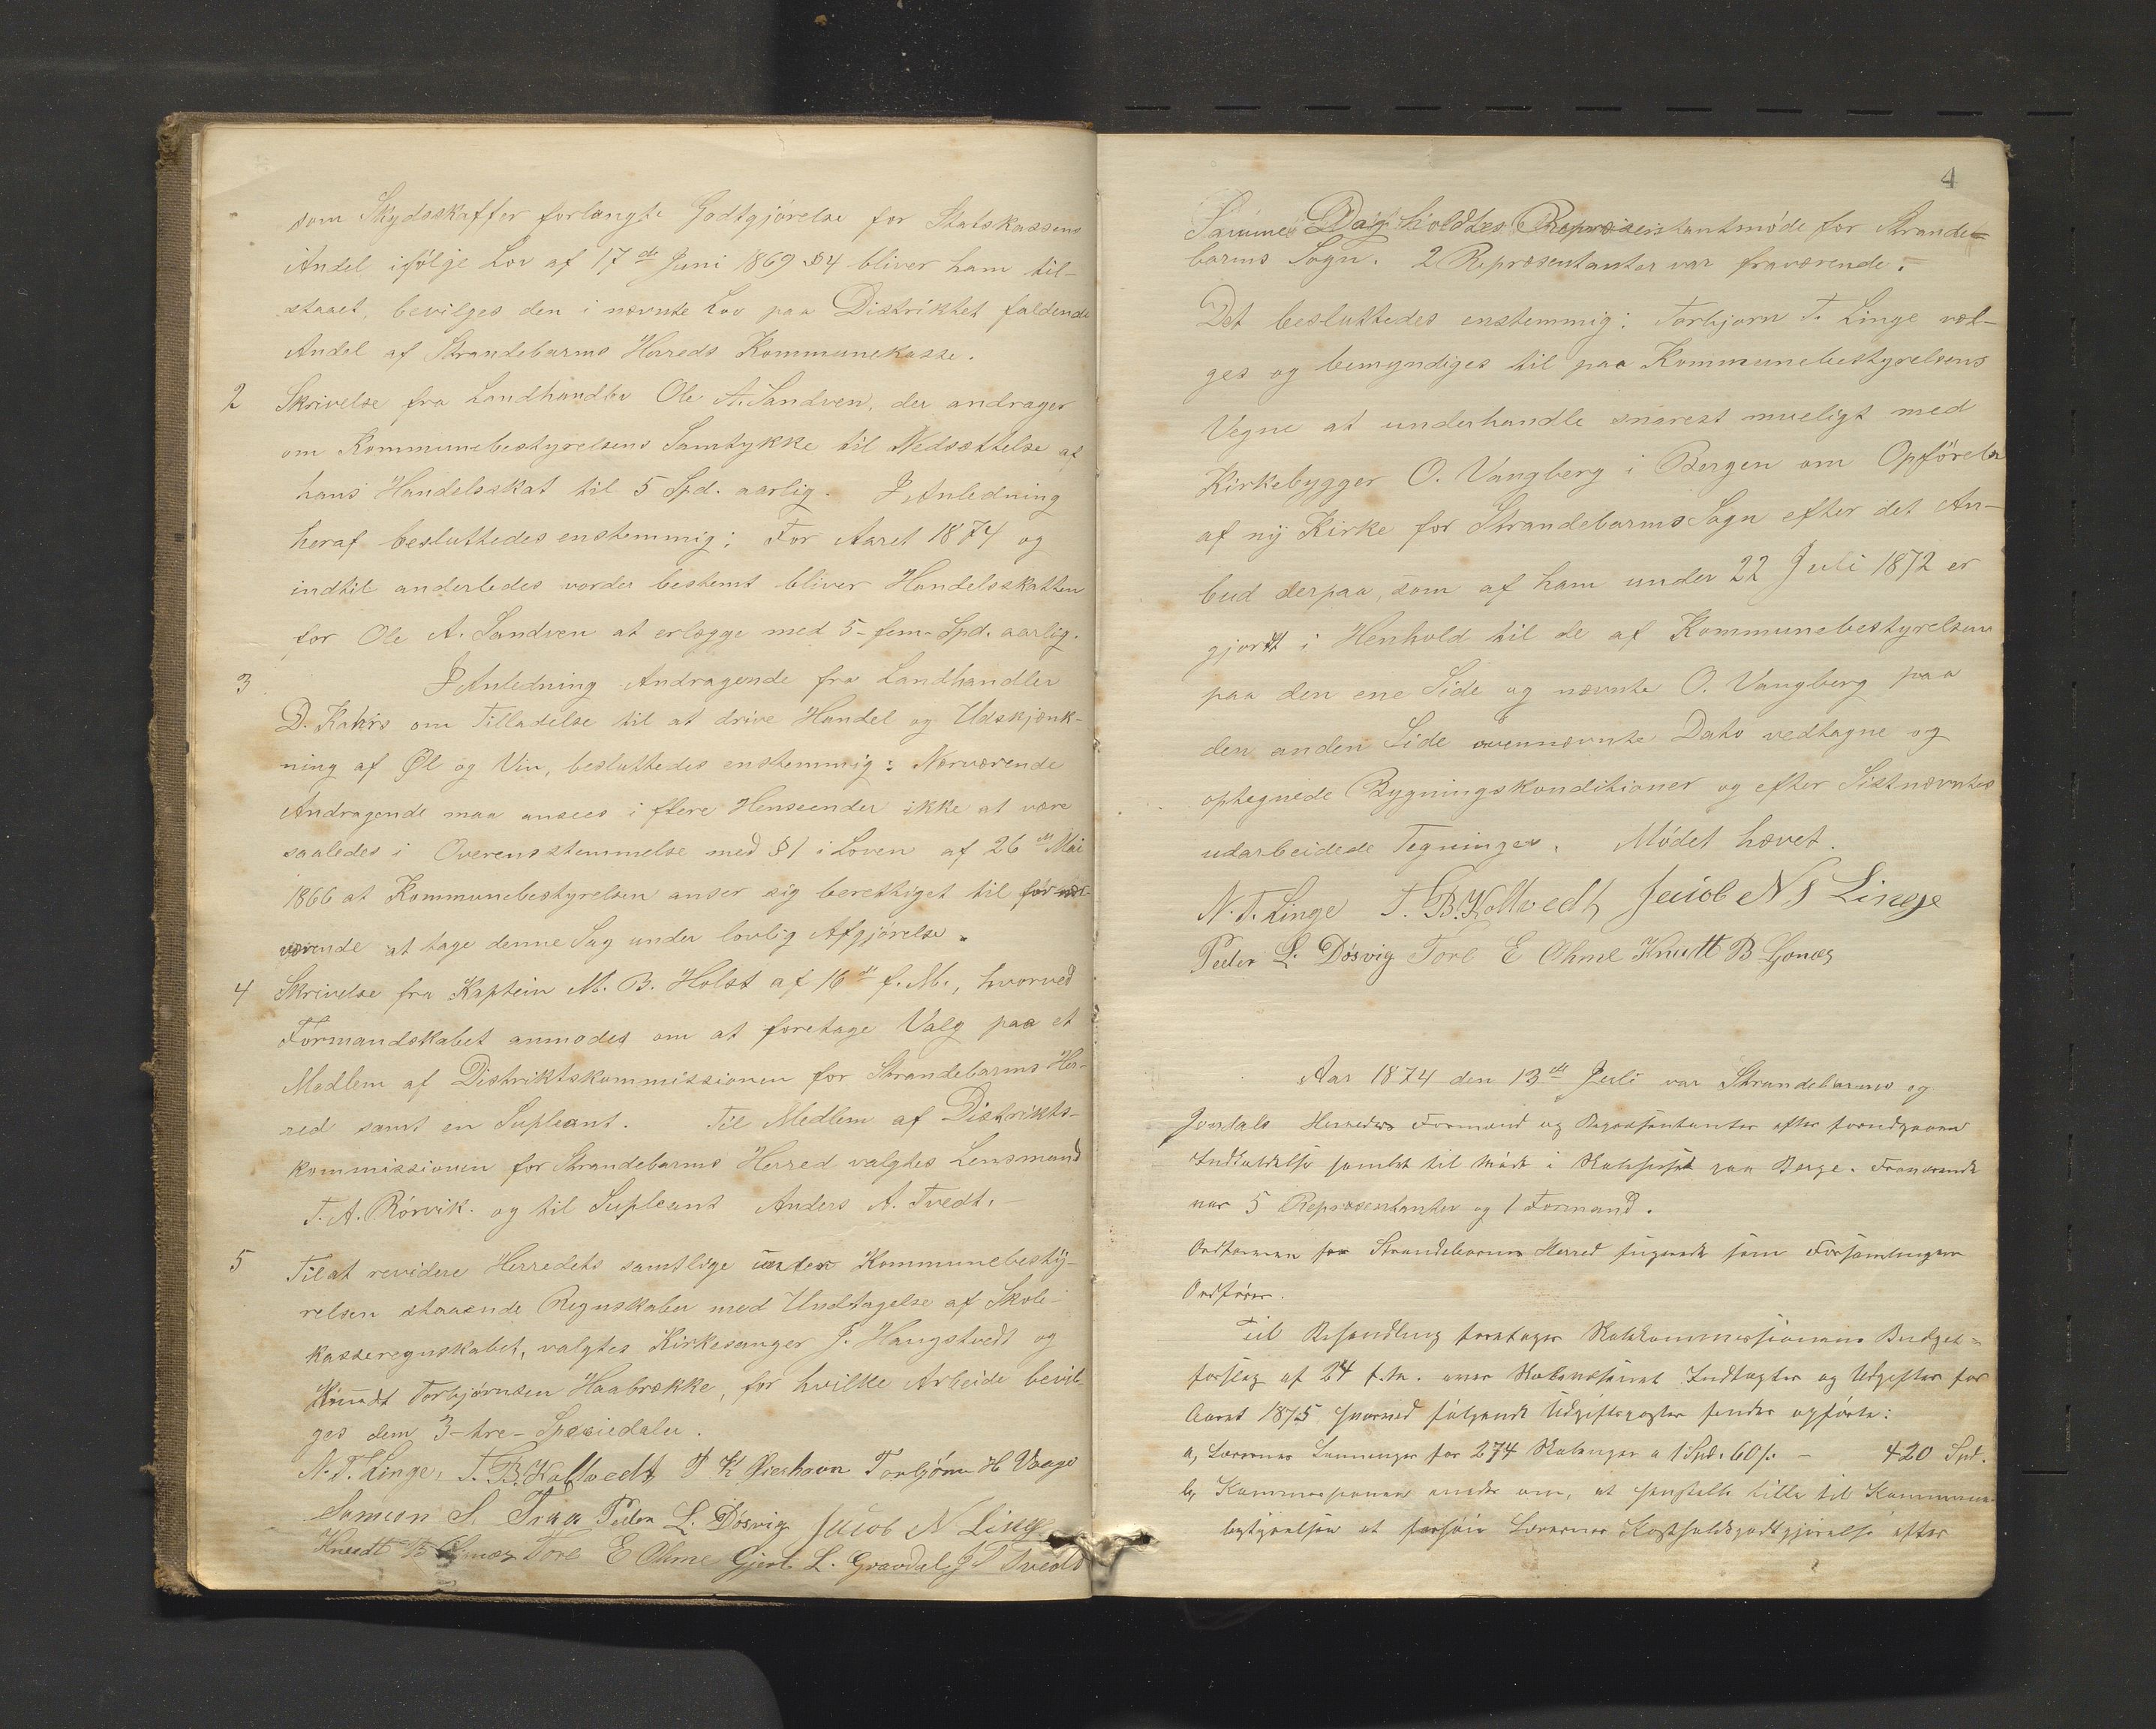 som Skydsskaffer forlangte Godtgjörelse for Statskassens
Andel ifölge Lov af 17de Juni 1869 §4 bliver ham til-
staaet, bevilges den i nævnte Lov paa Distriktet faldende
Andel af Strandebarms Herreds Kommunekasse.
2 Skrivelse fra Landhandler Ole A. Sandven, der andrager
om Kommunebestyrelsens Samtykke til Nedsættelse af
hans Handelsskat til 5 Spd. aarlig. I Anledning
heraf besluttedes enstemmig: For Aaret 1874 og
indtil anderledes vorder bestemt bliver Handelsskatten
for Ole A. Sandven at erlægge med 5-fem-Spd. aarlig.
3 I Anledning Andragende fra Landhandler
D. Kahrs om Tilladelse til at drive Handel og Udskjænk-
ning af Øl og Vin, besluttedes enstemmig: Nærværende
Andragende maa ansees i flere Henseender ikke at være
saaledes i Overensstemmelse med §1 i Loven af 26de Mai
1866 at Kommunebestyrelsen anser sig berettiget til for nær-
værende at tage denne Sag under lovlig Afgjørelse.
4 Skrivelse fra Kaptein M. B. Holst af 16de f. M., hvorved
Formandskabet anmodes om at foretage Valg paa et
Medlem af Distriktskommissionen for Strandebarms Her-
red samt en Supleant. Til Medlem af Distrikts-
kommissionen for Strandebarms Herred valgtes Lensmand
T. A. Rörvik. og til Supleant Anders A. Tvedt.
5 Til at revidere Herredets samtlige under Kommunebesty-
relsen staaende Regnskaber med Undtagelse af Skole-
kasseregnskabet, valgtes Kirkesanger J. Haugstvedt og
Knudt Torbjørnsen Haabrække, for hvilke Arbeide bevil-
ges dem 3-tre-Speciedaler.
N. T. Linge, T. B. Kollvedt P K Øierhavn Torbjörn H Vaage
Samson S. Traa Peder L. Dösvig Jacob N Linge
Knudt B Tore E Ohme Gjert L. Gravdal J T Tvedt
4
Samme Dag holdtes Repræsentantmöde for Strande-
barms Sogn. 2 Repræsentanter var fraværende.
Det besluttedes enstemmig: Torbjørn T. Linge væl-
ges og bemyndiges til paa Kommunebestyrelsens
Vegne at underhandle snarest mueligt med
Kirkebygger O. Vangberg i Bergen om Opförelse
af ny Kirke for Strandebarms Sogn efter det An-
bud derpaa, som af ham under 22 Juli 1872 er
gjordt i Henhold til de af Kommunebestyrelsen
paa den ene Side og nævnte O. Vangberg paa
den anden Side ovennævnte Dato vedtagne og
optegnede Bygningskonditioner og efter Sistnævntes
udarbeidede Tegninger. Mödet hævet.
N. T. Linge T. B. Kollvedt Jacob N S Linge
Peder L. Dösvig Tore E Ohme Knutt B
Aar 1874 den 13de Juli var Strandebarms og
Jondals Herreders Formænd og Repræsentanter efter foregaaende
Indkaldelse samlet til Möde i paa Berge. Fraværende
var 5 Repræsentanter og 1 Formand.
Ordføreren for Strandebarms Herred fungerede som Forsamlingens
Ordförer.
Til Behandling foretages Skolekommissionens Budget-
forslag af 24 f. M. over Skolevæsenets Indtægter og Udgifter for
Aaret 1875 hvorved fölgende Udgiftsposter findes opförte:
a, Lærernes Lönninger for 274 Skoleuger a 1 Spd. 60 s. - 420 Spd.
b, Kommissionen om, at henstille til Kommune-
bestyrelsen at Lærernes Kostholdsgodtgjörelse efter